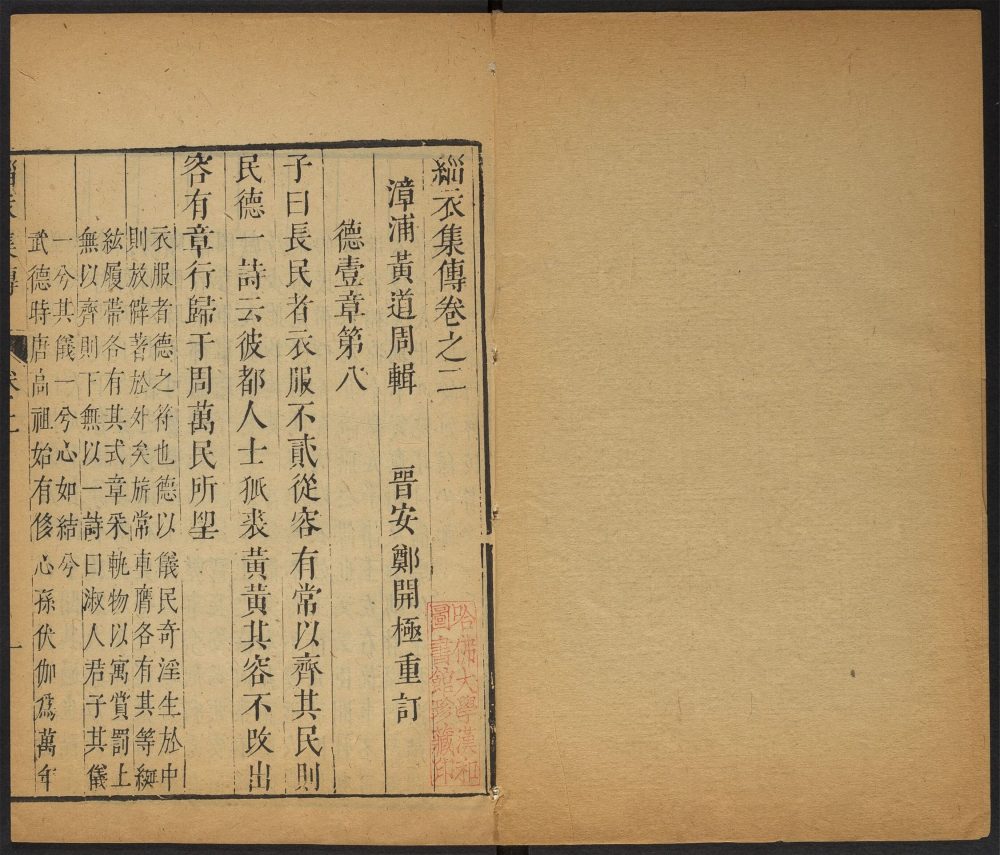 緇衣集傳卷之二
漳浦黃道周輯 晉安鄭開極重訂
德壹章第八
子曰長民者衣服不貳從容有常以齊其民則
民德一詩云彼都人士狐裘黃黃其容不改出
容有章行歸于周萬民所望
衣服者德之符也德以儀民奇淫生於中
則放辟著於外矣旂常車膺各有其等綖
紘履帶各有其式章采軌物以寓賞罰上
無以齊則下無以一詩曰淑人君子其儀
一兮其儀一兮心如結兮
武德時唐高祖始有侈心孫伏伽爲萬年
緇衣集傳 卷二 一
哈佛大學漢和
圖書館珍藏印